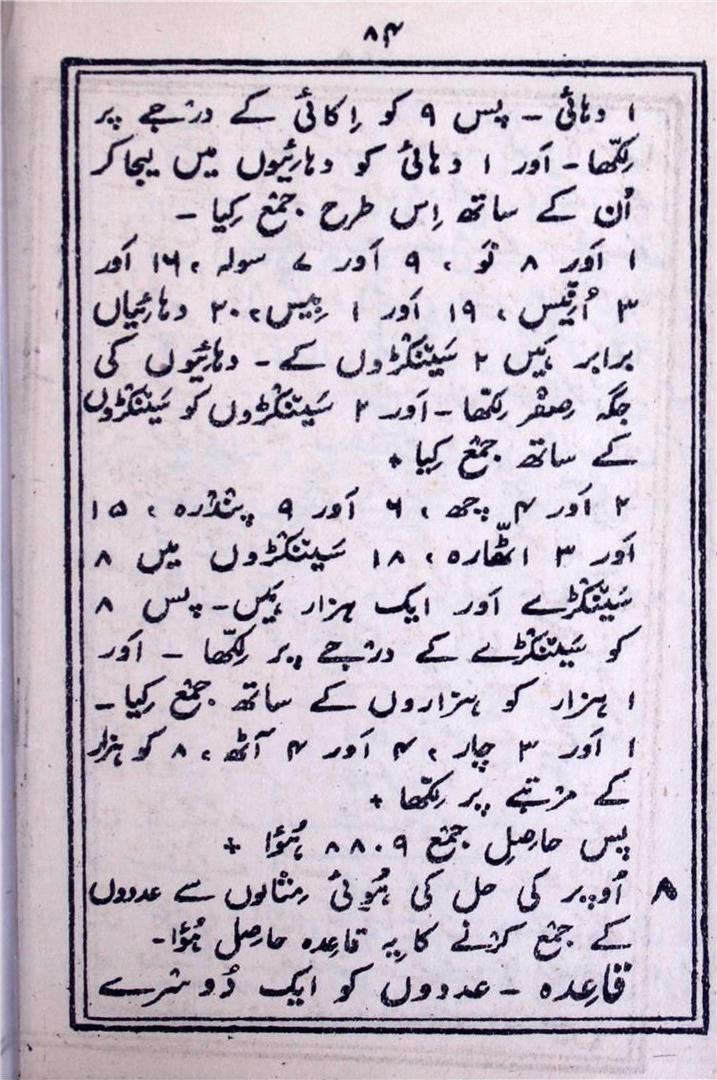 ۸۴
۱ دہائی ـ پس ۹ کو اِکائی کے درجے پر
رکھّا ـ اَور ۱ دہائی کو دہائِیوں میں لیجاکر
اُن کے ساتھ اِس طرح جمْع کِیا ـ
۱ اَور ۸ نَو ، ۹ اَور ۷ سولہ ، ۱۶ اَور
۳ اُنِّیس ، ۱۹ اَور ۱ بِیس ، ۲۰ دہائِیاں
برابر ہَیں ۲ سَینْکڑوں کے ـ دہائِیوں کی
جگہ صِفْر رکھّا ـ اَور ۲ سَینْکڑوں کو سَینْکڑوں
کے ساتھ جمْع کِیا +
۲ اَور ۴ چھ ، ۶ اَور ۹ پنْدْرہ ، ۱۵
اَور ۳ اٹّھارہ ، ۱۸ سَینْکڑوں میں ۸
سَینْکڑے اَور ایک ہزار ہَیں ـ پس ۸
کو سَینْکڑے کے درجے پر رکھّا ـ اَور
۱ ہزار کو ہزاروں کے ساتھ جمْع کِیا ـ
۱ اَور ۳ چار ، ۴ اَور ۴ آٹھ ، ۸ کو ہزار
کے مرْتبے پر رکھّا +
پس حاصِلِ جمْع ۸۸۰۹ ہُؤا +
۸ اُوپر کی حل کی ہُوئی مِثالوں سے عددوں
کے جمْع کرْنے کا یہ قاعِدہ حاصِل ہُؤا ـ
قاعِدہ ـ عددوں کو ایک دُوسْرے